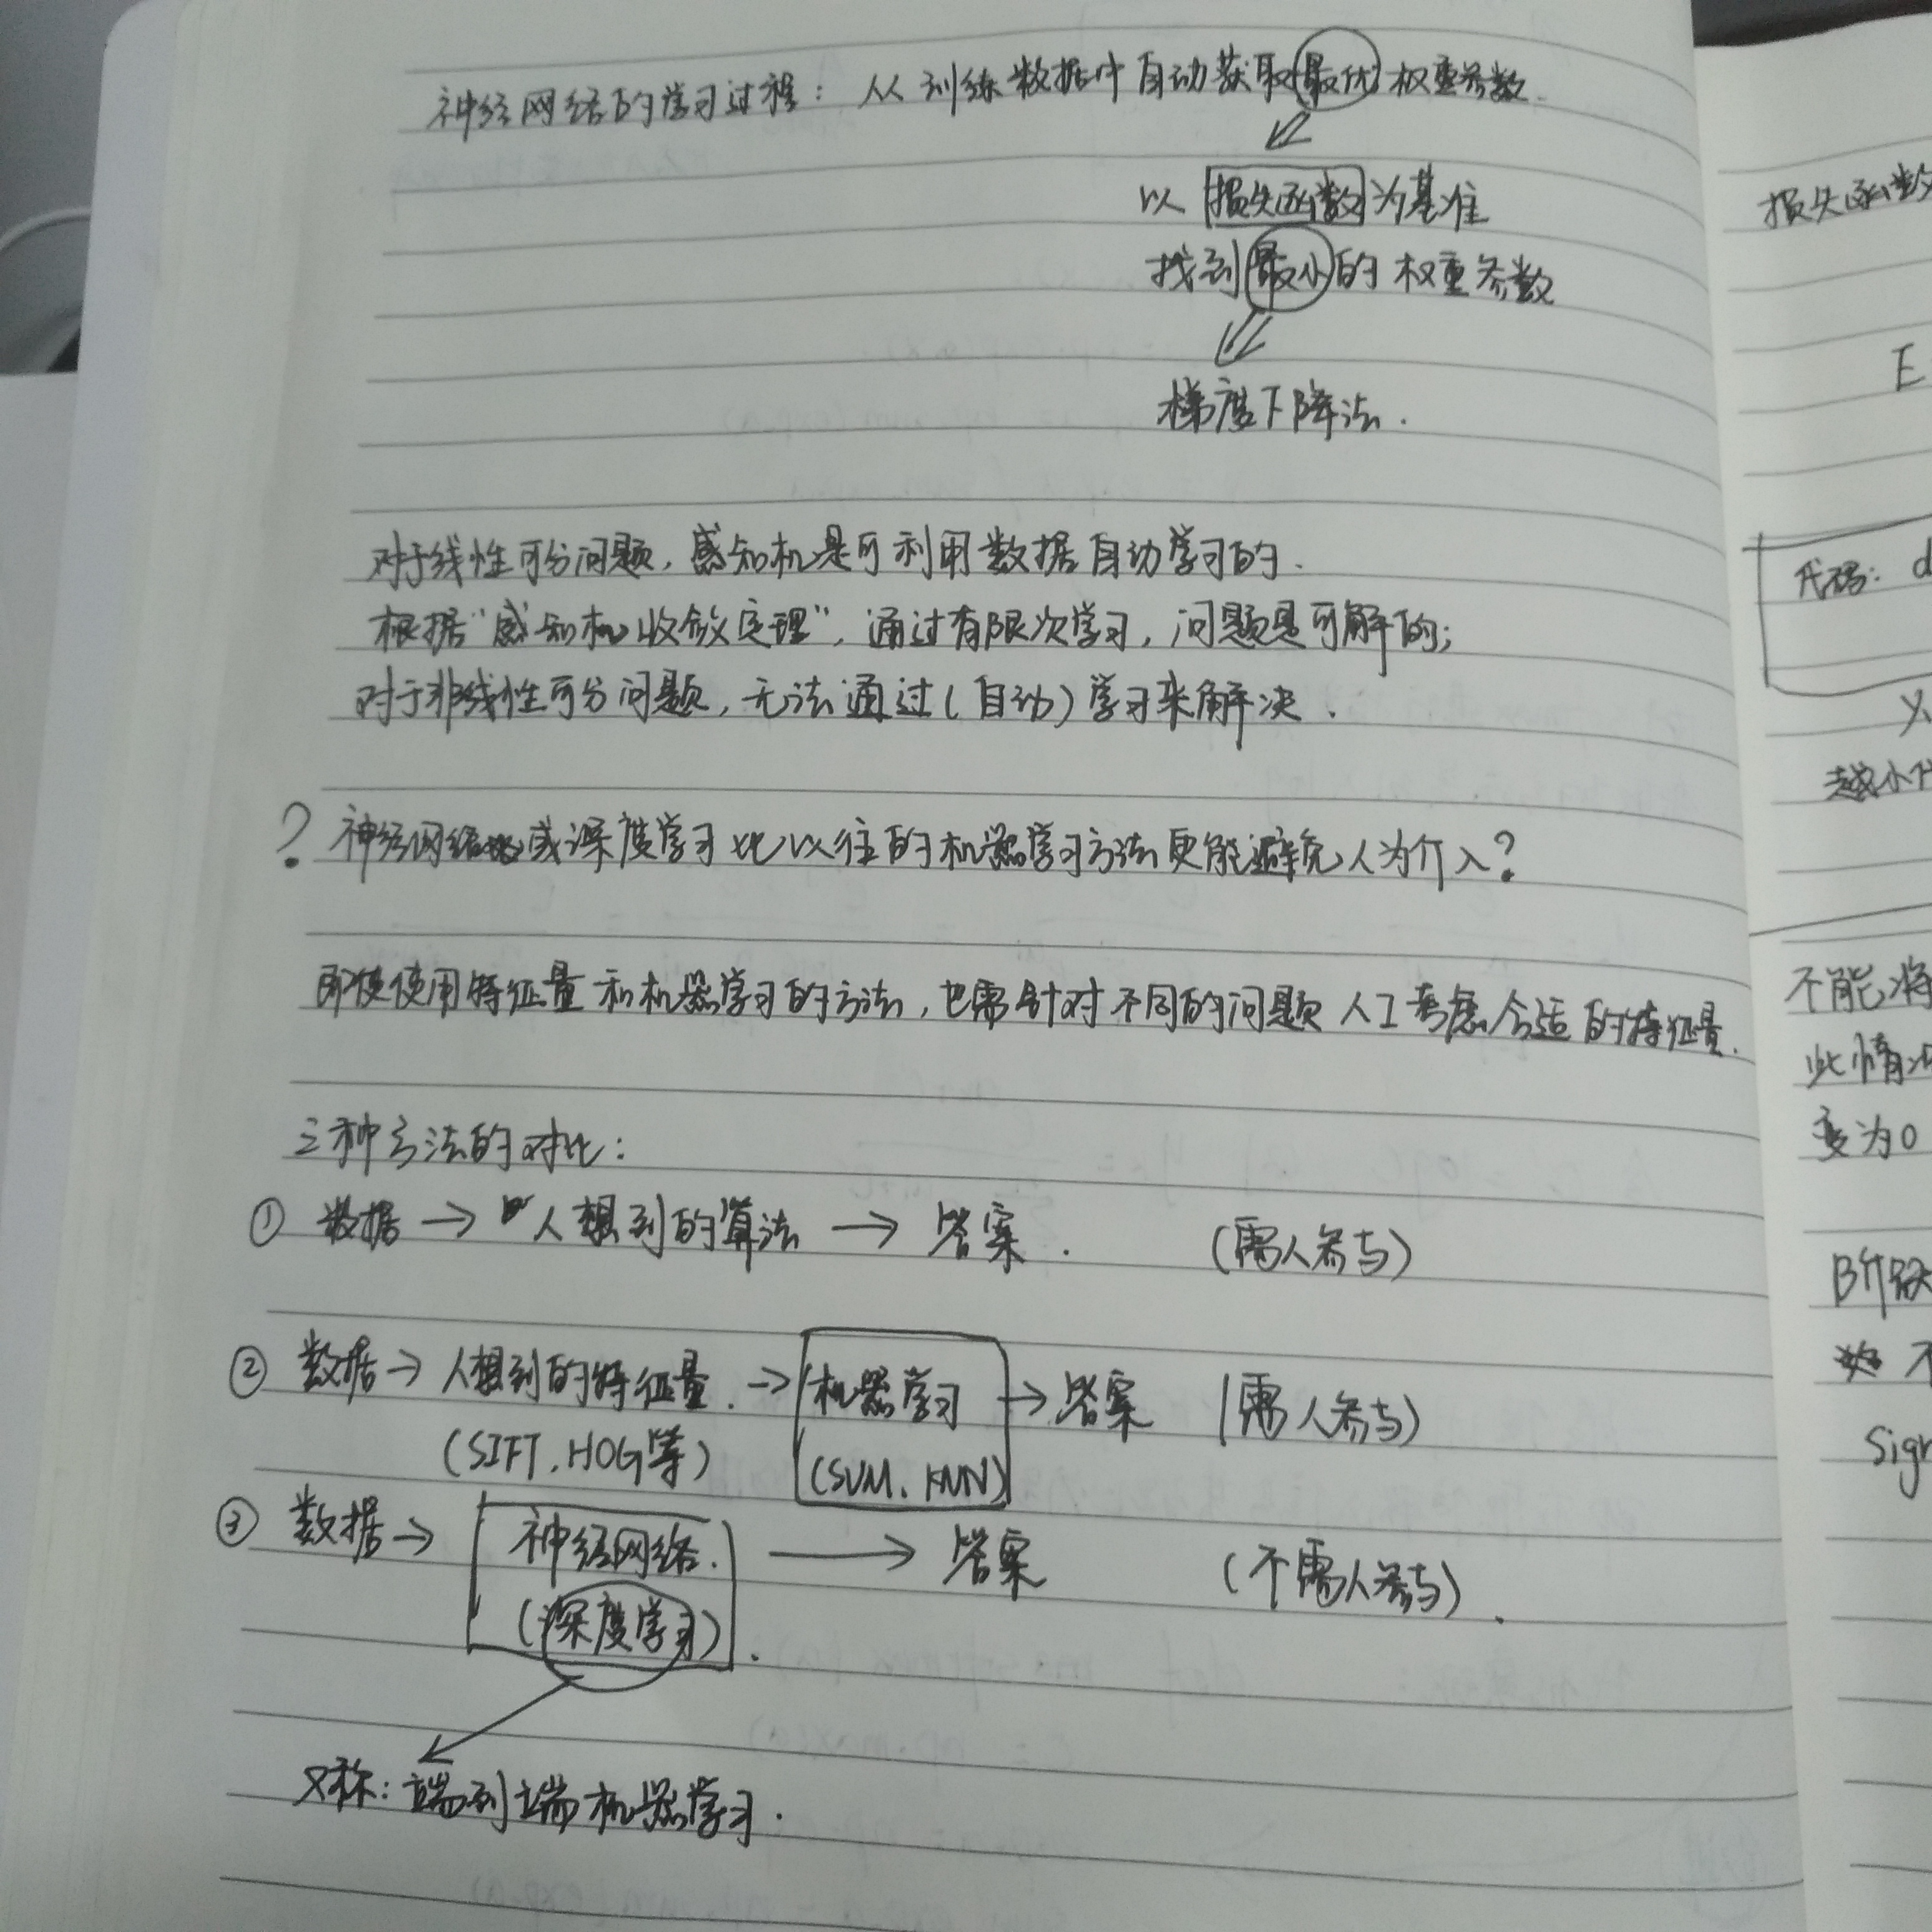 神经网络的学习过程：从训练数据中自动获取最优权重参数.
以损失函数为基准
找到最小的权重参数
梯度下降法.
对于线性可分问题，感知机是可利用数据自动学习的.
根据“感知机收敛定理”，通过有限次学习，问题是可解的；
对于非线性可分问题，无法通过（自动）学习来解决.
? 神经网络或深度学习比以往的机器学习方法更能避免人为介入？
即使使用特征量和机器学习的方法，也需针对不同的问题人工考虑合适的特征量.
三种方法的对比：
① 数据 → 人想到的算法 → 答案. （需人参与）
② 数据 → 人想到的特征量. → 机器学习 → 答案 （需人参与）
（SIFT, HOG等） （SVM、KNN）
③ 数据 → 神经网络. → 答案 （不需人参与）.
（深度学习）.
又称：端到端机器学习.
损失函数
E
代码：d
越小
不能将
此情况
变为0
阶跃
不
Sigm